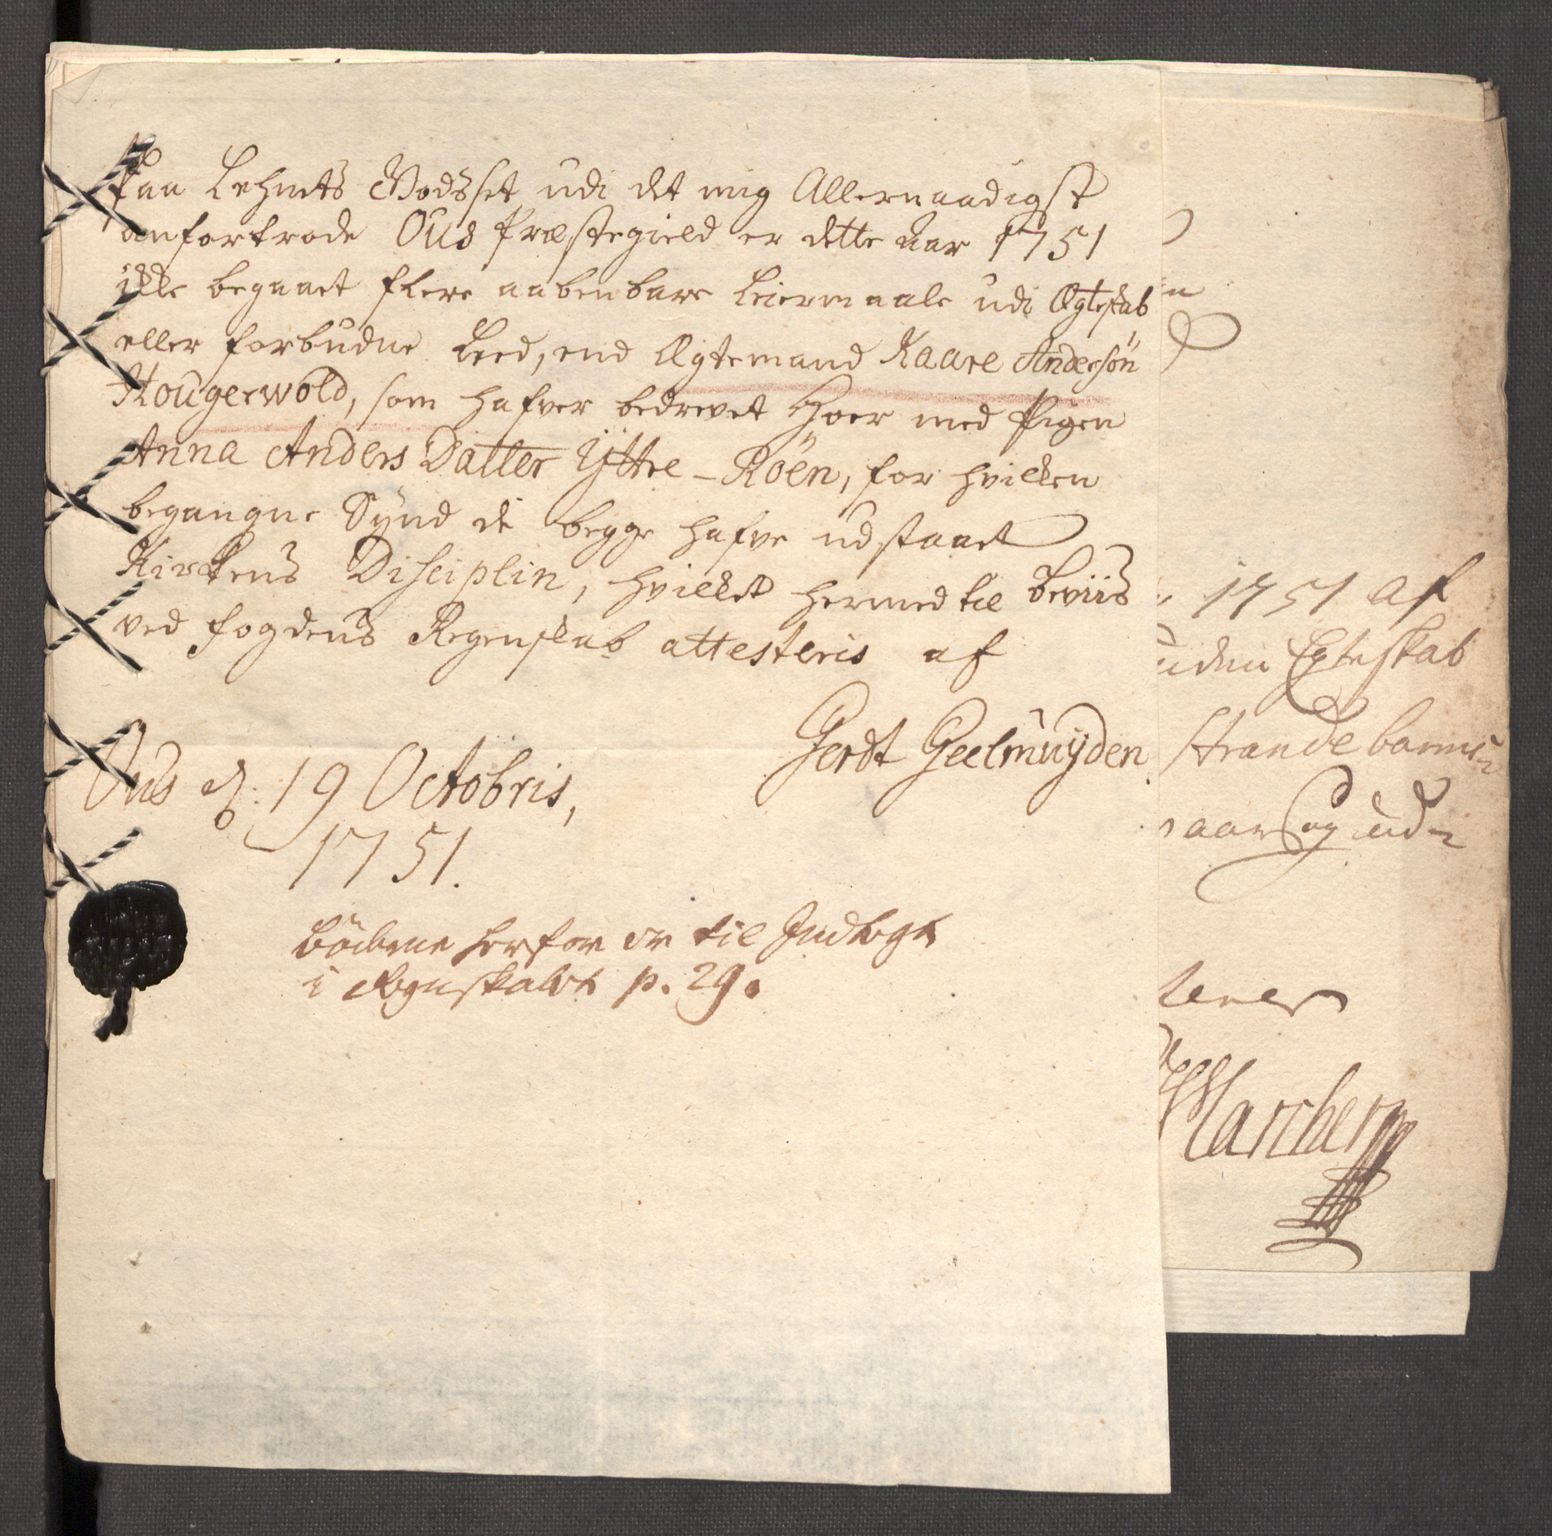 Paa Lehnets Godsset udi det mig Allernaadigst
anfortrode Ous Præstegield er dette aar 1751
ikke begaaet flere aabenbare Leiermaale udi Ægteskab
eller forbudne Leed, end Ægtemand Kaare Andersön
Hougerwold, som hafver bedrevet Hoer med Pigen
Anna Anders Datter Ÿttre-Röen, for hvilken
begangne Sÿnd de begge hafve udstaaet
Kirkens Disciplin, hvilket hermed til Beviis
ved fogdens Regenskab attesteris af
Gerdt Geelmuÿden.
Ous d: 19 Octobris,
1751.
Böderne herfor er til Indtegt
i Regnskabet p. 29.
1751 af
uden Egteskab
Strande
og ud-